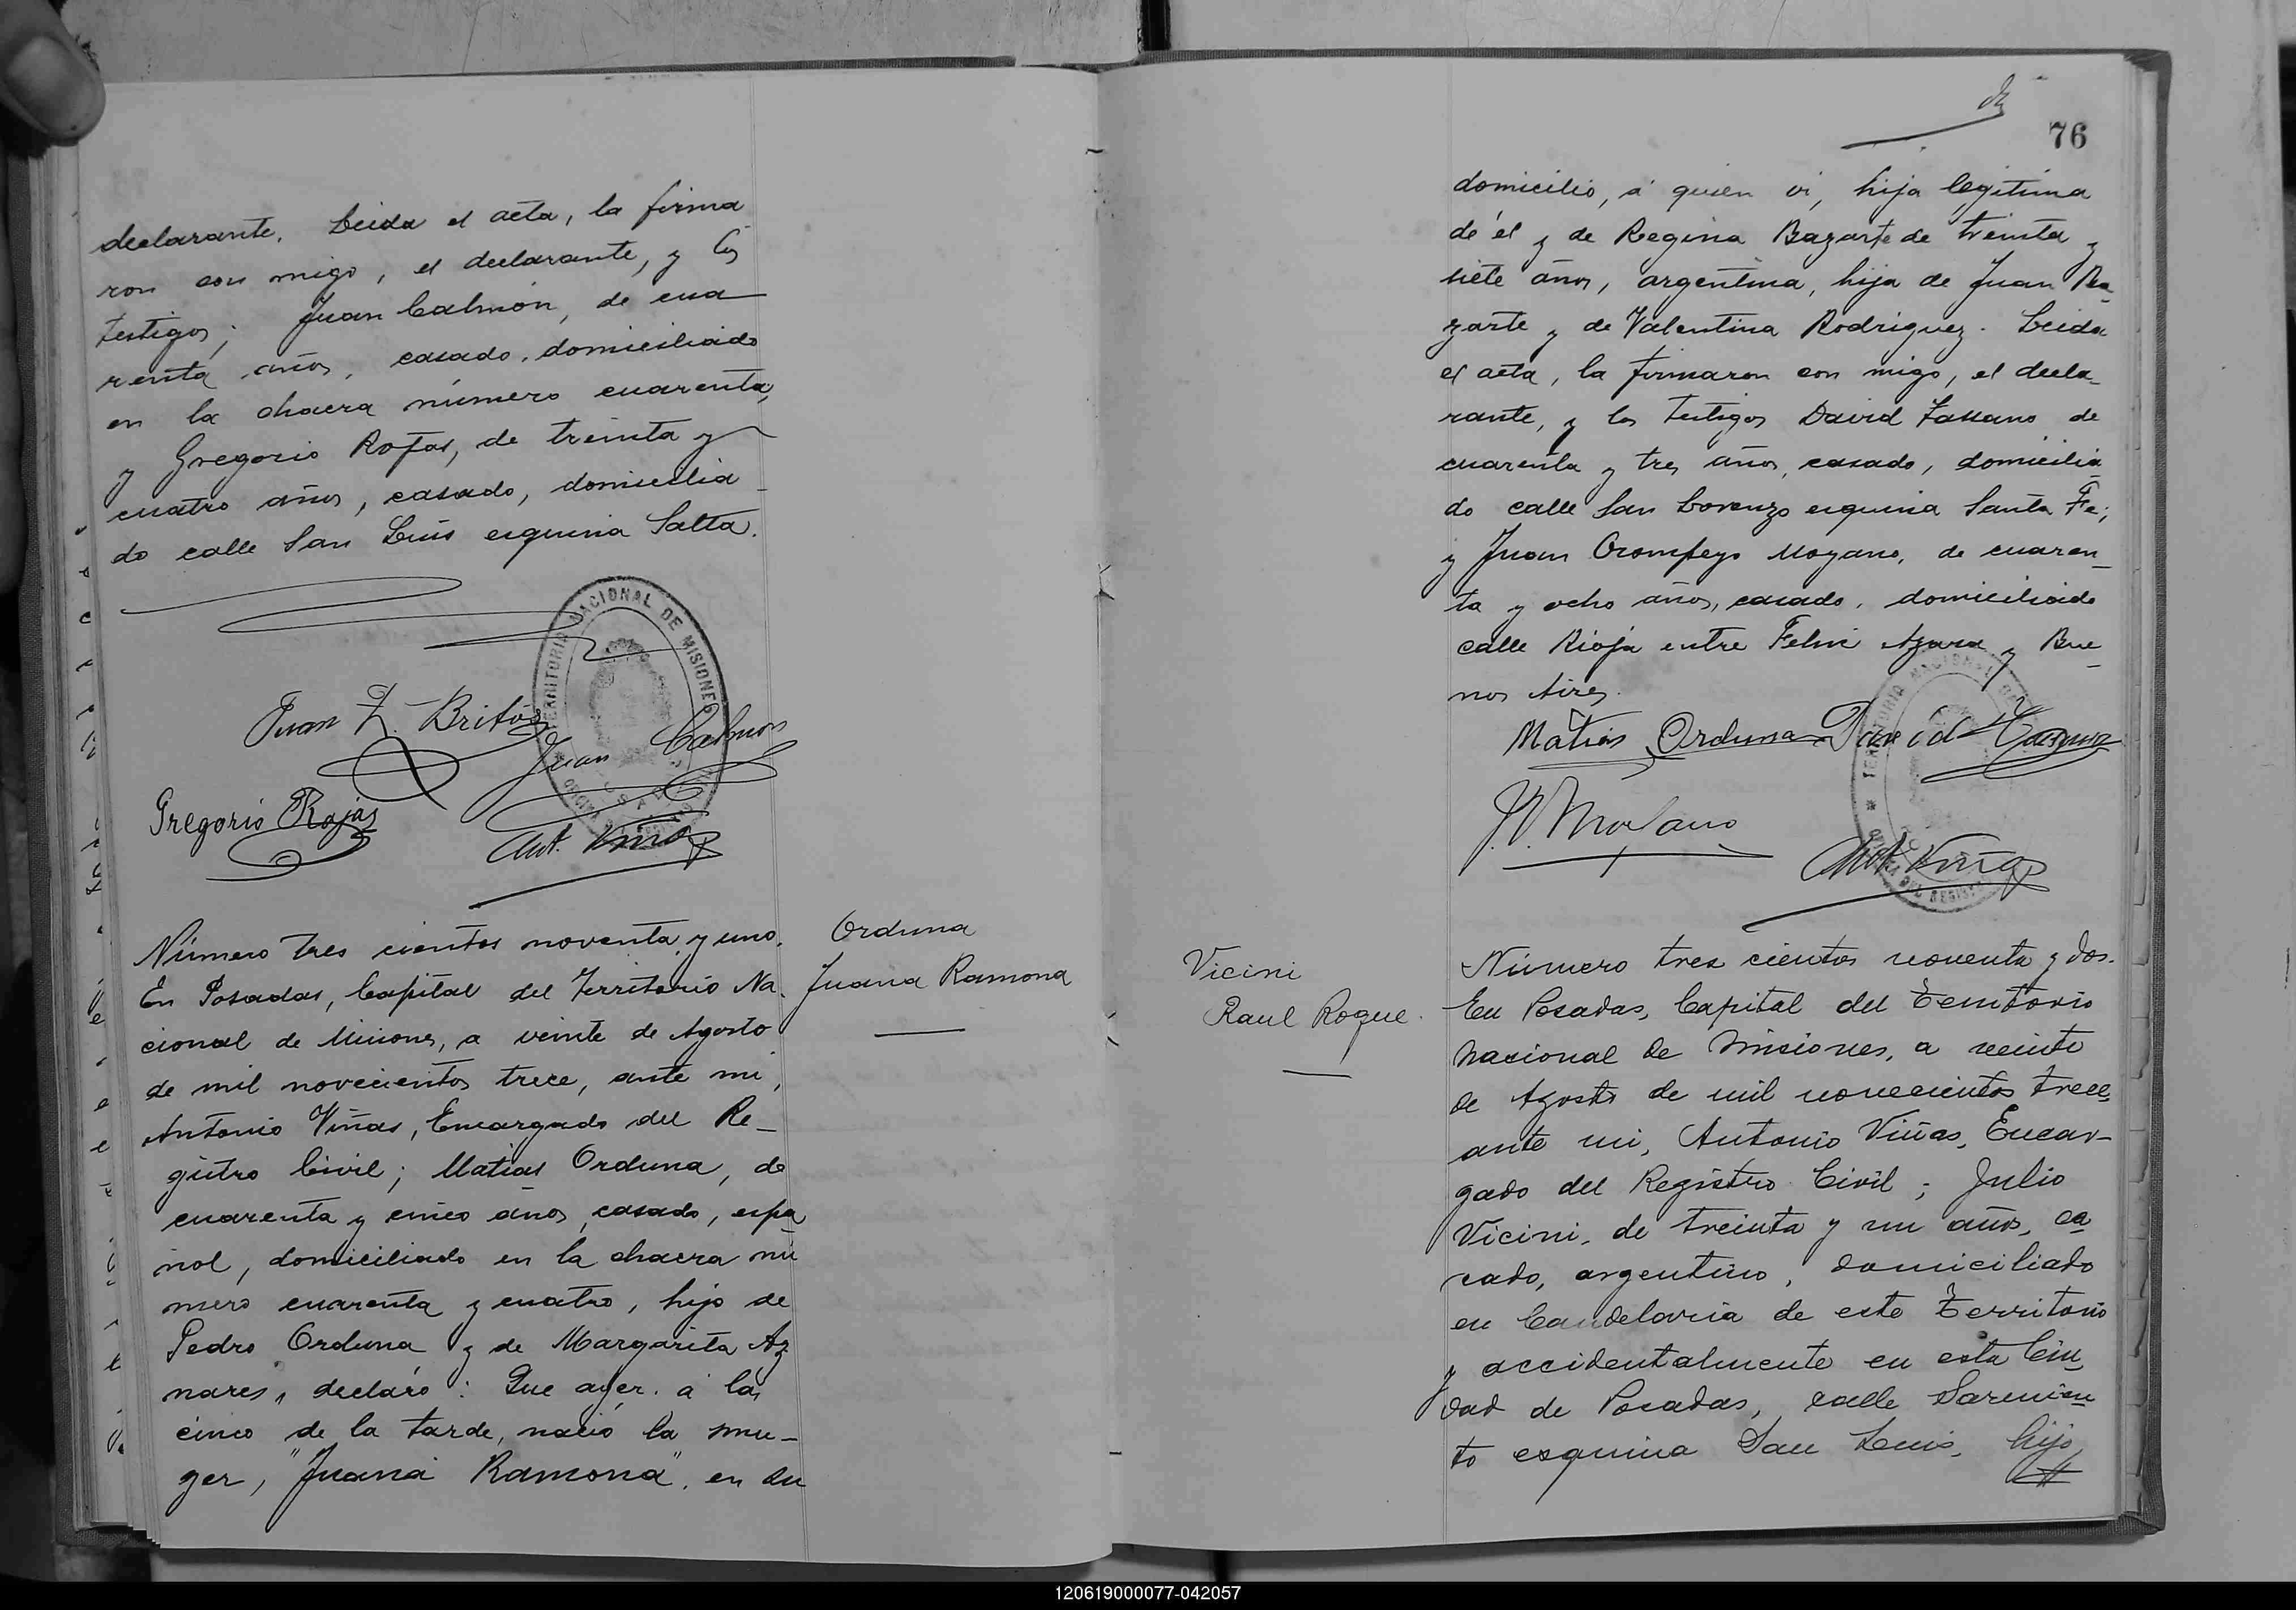 declarante. Leida el acta, la firma
ron con migo, el declarante, y los
testigos; Juan Calmón, de cua
renta años, casado, domiciliado
en la chacra número cuarenta,
y Gregorio Rojas, de treinta y
cuatro años, casado, domicilia
do calle San Luis esquina Salta.
TERRITORIO NACIONAL DE MISIONES
Juan Z. Britos
Juan Calmon
Gregorio Rojas
Ant. Viñas
Número tres cientos noventa y uno.
Orduna
Juana Ramona
En Posadas, Capital del Territorio Na
cional de Misiones, a veinte de Agosto
de mil novecientos trece, ante mi,
Antonio Viñas, Encargado del Re_
gistro Civil; Matias Orduna, de
cuarenta y cinco años, casado, espa
ñol, domiciliado en la chacra nú
mero cuarenta y cuatro, hijo de
Pedro Orduna y de Margarita Az
nares, declaró: Que ayer. á las
cinco de la tarde, nació la mu-
ger, "Juana Ramona", en su
76
domicilio, á quien ví, hija legítima
de él y de Regina Bazarte de treinta y
siete años, argentina, hija de Juan Ba_
zarte y de Valentina Rodriguez. Leida
el acta, la firmaron con migo, el decla_
rante, y los testigos David de
cuarenta y tres años, casado, domicilia
do calle San Lorenzo esquina Santa Fe;
y Juan Moyano, de cuaren_
ta y ocho años, casado, domiciliado
calle Rioja entre Felix Azara y Bue_
nos Aires.
Matias Orduna David
Ant. Viñas
Vicini
Raul Roque.
Número tres cientos noventa y dos.
En Posadas, Capital del Territorio
Nacional de Misiones, a veinte
de Agosto de mil novecientos trece,
ante mi, Antonio Viñas, Encar-
gado del Registro Civil; Julio
Vicini, de treinta y un años, ca
sado, argentino, domiciliado
en Candelaria de este Territorio
y accidentalmente en esta Ciu
dad de Posadas, calle Sarmien
to esquina San Luis, hijo
120619000077-042057